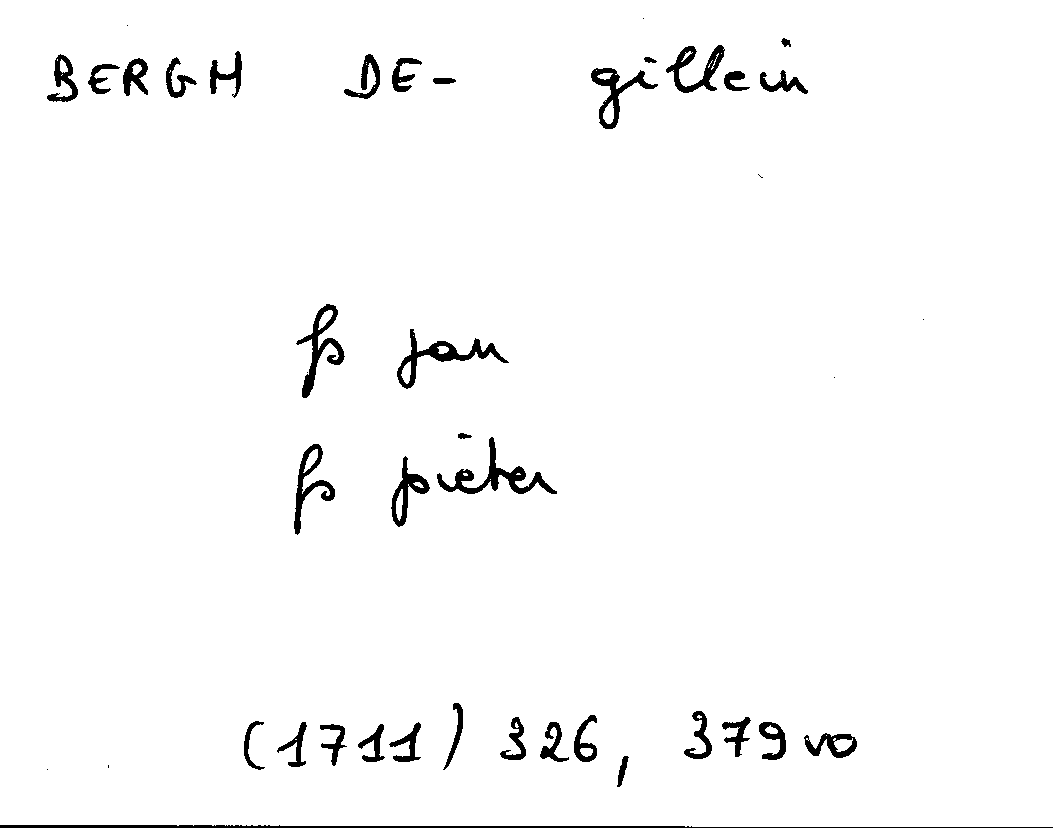 BERGH DE- gillein
fs jan
fs pieter
(1711) 326, 379vo